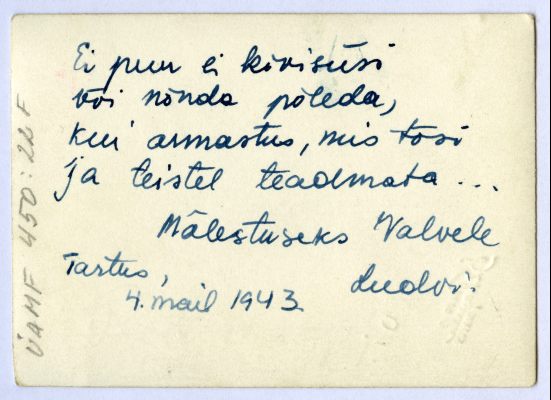 Ei puu ei kivisüsi
või nõnda põleda,
kui armastus, mis tõsi
ja teistel teadmata ...
Mälestuseks Valvele
Tartus,
4. mail 1943
ÜAMF 450:22 F